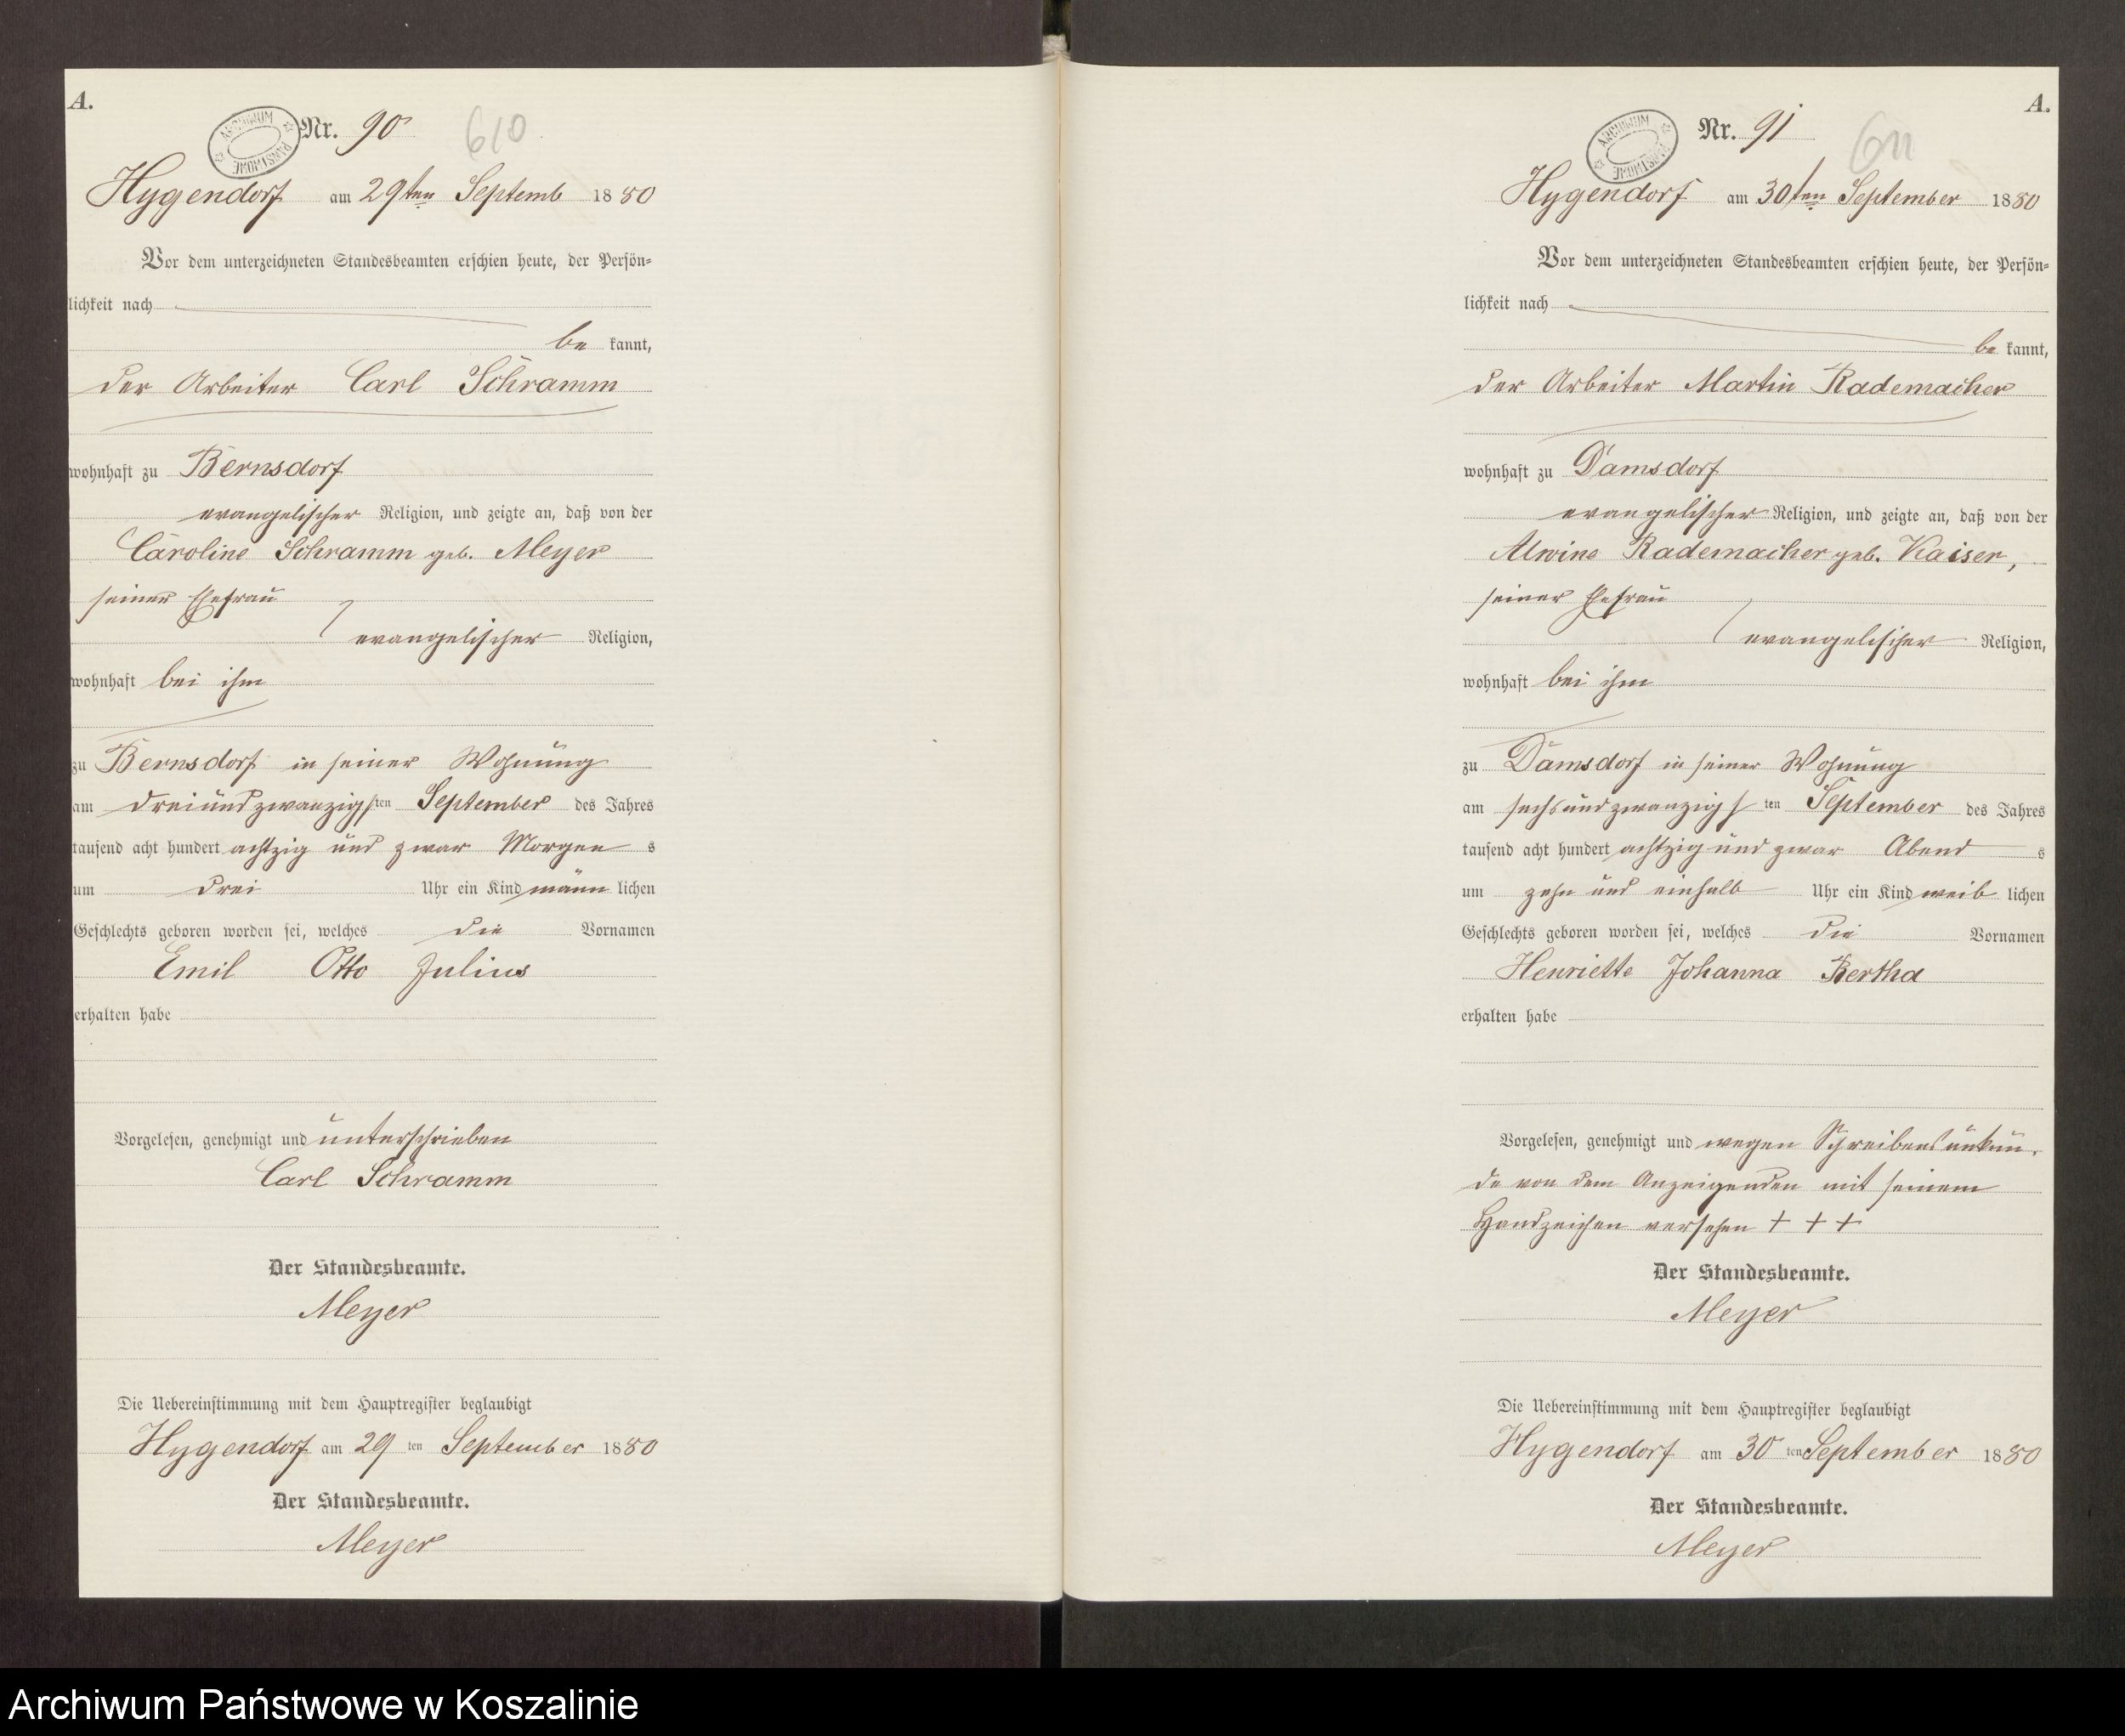 A.
ARCHIWUM PAŃSTWOWE
Nr. 90
610
Hygendorf am 29ten Septemb 1880
Vor dem unterzeichneten Standesbeamten erschien heute, der Persön-
lichkeit nach
be kannt,
der Arbeiter Carl Schramm
wohnhaft zu Bernsdorf
evangelischer Religion, und zeigte an, daß von der
Caroline Schramm geb. Meyer
seiner Ehefrau
evangelischer Religion,
wohnhaft bei ihm
zu Bernsdorf in seiner Wohnung
am dreiundzwanzigsten September des Jahres
tausend acht hundert achtzig und zwar Morgens
um drei Uhr ein Kind männlichen
Geschlechts geboren worden sei, welches die Vornamen
Emil Otto Julius
erhalten habe
Vorgelesen, genehmigt und unterschrieben
Carl Schramm
Der Standesbeamte.
Meyer
Die Uebereinstimmung mit dem Hauptregister beglaubigt
Hygendorf am 29 ten September 1880
Der Standesbeamte.
Meyer
A.
ARCHIWUM PAŃSTWOWE
Nr. 91
611
Hygendorf am 30ten September 1880
Vor dem unterzeichneten Standesbeamten erschien heute, der Persön-
lichkeit nach
be kannt,
der Arbeiter Martin Rademacher
wohnhaft zu Damsdorf
evangelischer Religion, und zeigte an, daß von der
Alwine Rademacher geb. Kaiser,
seiner Ehefrau
evangelischer Religion,
wohnhaft bei ihm
zu Damsdorf in seiner Wohnung
am sechsundzwanzigsten September des Jahres
tausend acht hundert achtzig und zwar Abends
um zehn und einhalb Uhr ein Kind weiblichen
Geschlechts geboren worden sei, welches die Vornamen
Henriette Johanna Bertha
erhalten habe
Vorgelesen, genehmigt und wegen Schreibensunkun-
de von dem Anzeigenden mit seinem
Handzeichen versehen + + +
Der Standesbeamte.
Meyer
Die Uebereinstimmung mit dem Hauptregister beglaubigt
Hygendorf am 30 ten September 1880
Der Standesbeamte.
Meyer
Archiwum Państwowe w Koszalinie